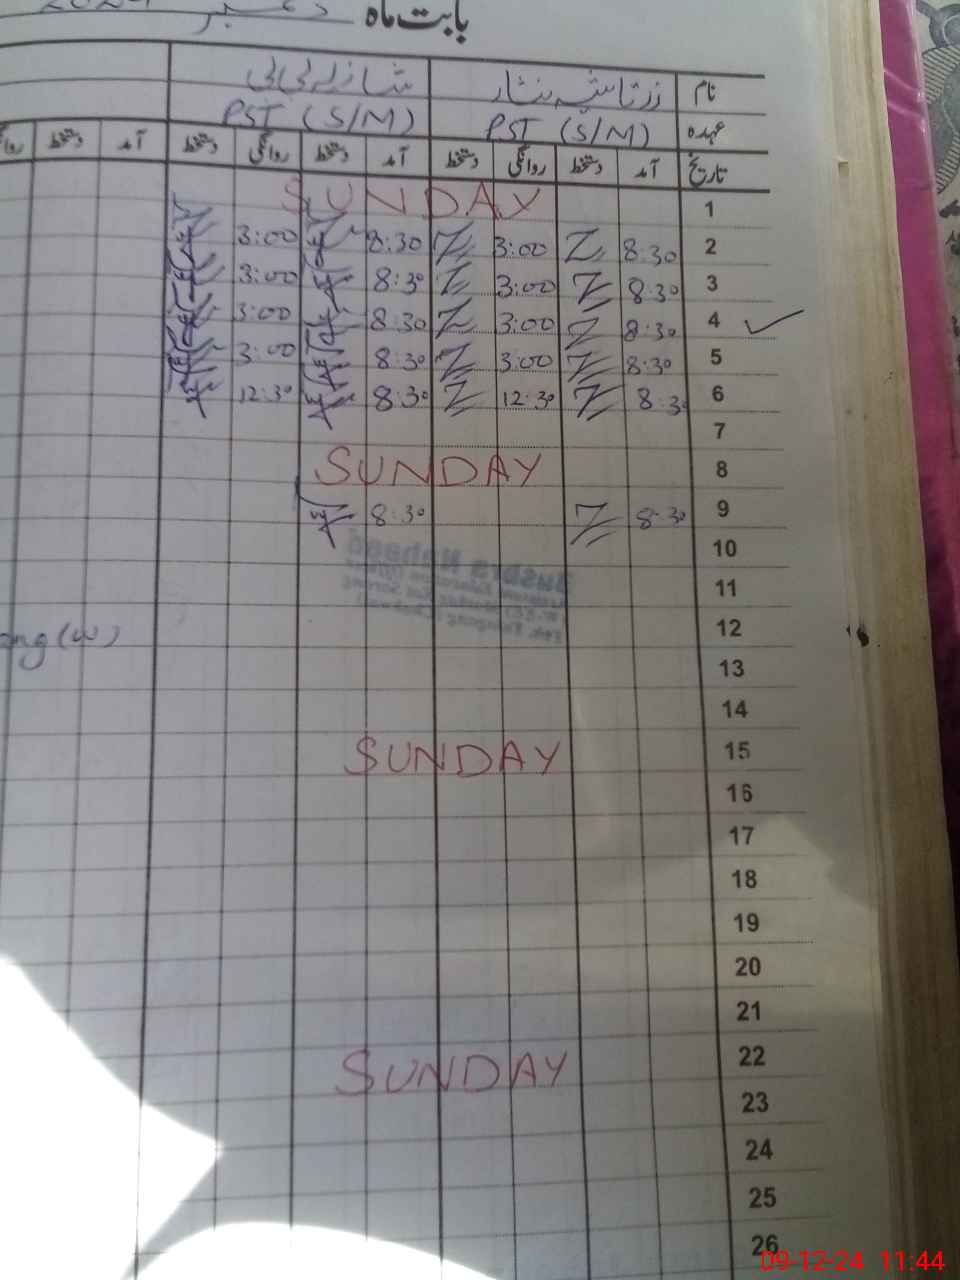 بابت ماہ دسمبر 2024
نام زرتاشیہ نثار شازیہ بی بی
عہدہ PST (S/M) PST (S/M)
تاریخ آمد دستخط روانگی دستخط آمد دستخط روانگی دستخط آمد دستخط
1 SUNDAY
2 8:30 3:00 8:30 3:00
3 8:30 3:00 8:30 3:00
4 8:30 3:00 8:30 3:00
5 8:30 3:00 8:30 3:00
6 8:30 12:30 8:30 12:30
7
8 SUNDAY
9 8:30 8:30
10
11
12
13
14
15 SUNDAY
16
17
18
19
20
21
22 SUNDAY
23
24
25
26
09-12-24 11:44